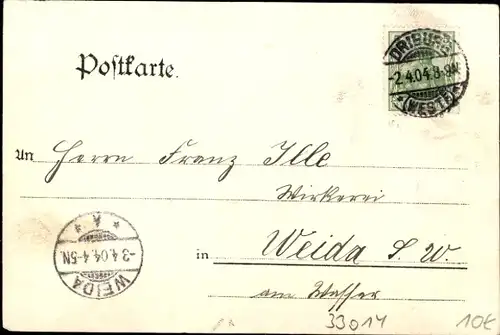 Postkarte.
DRIBURG
-2.4.04.8-9N.
* (WESTF.) *
An Herrn Franz Ille
Wirkerei
in Weida S. W.
am Wasser
* A *
-3.4.04.4-5N.
WEIDA
33014
10€